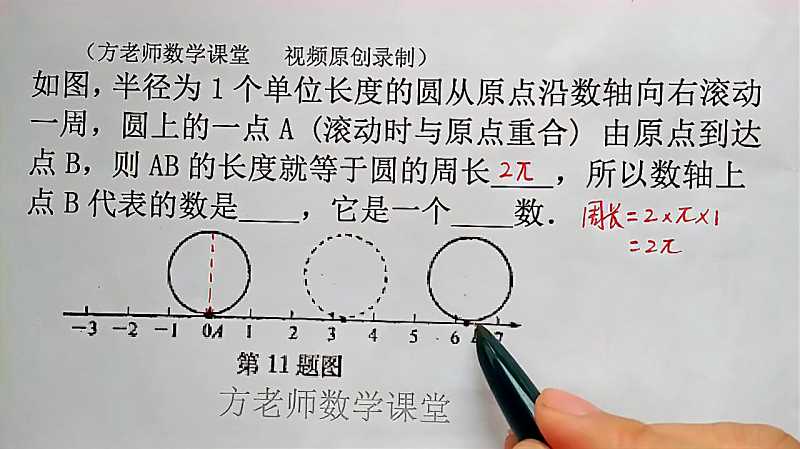 （方老师数学课堂　视频原创录制）
如图，半径为 1 个单位长度的圆从原点沿数轴向右滚动
一周，圆上的一点 A (滚动时与原点重合) 由原点到达
点 B，则 AB 的长度就等于圆的周长 2π ，所以数轴上
点 B 代表的数是____，它是一个____数．
周长=2×π×1
=2π
-3 -2 -1 0A 1 2 3 4 5 6 7
第 11 题图
方老师数学课堂